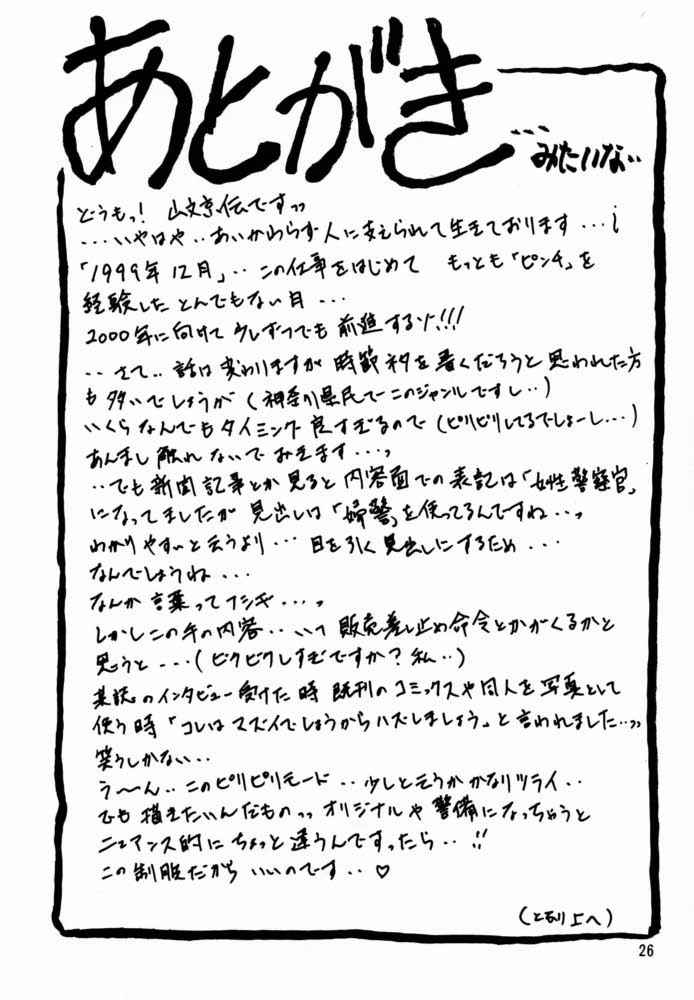 あとがき
...みたいな..
どうもっ! 山文京伝ですっっ
...いやはや..あいかわらず人に支えられて生きております...
「1999年12月」..この仕事をはじめて もっとも「ピンチ」を
経験したとんでもない月...
2000年に向けて少しずつでも前進するゾ!!!
..さて..話は変わりますが時節ネタを書くだろうと思われた方
も多いでしょうが(神奈川県民でこのジャンルですし..)
いくらなんでもタイミング良すぎるので(ピリピリしてるでしょーし...)
あんまし触れないでおきます...っ
..でも新聞記事とか見ると内容面での表記は「女性警察官」
になってましたが見出しは「婦警」を使ってるんですね...っ
わかりやすいと云うより...目を引く見出しにするため...
なんでしょうね...
なんか言葉ってフシギ...っ
しかしこの手の内容..いつ販売差し止め命令とかがくるかと
思うと...(ビクビクしすぎですか?私..)
某誌のインタビュー受けた時既刊のコミックスや同人を写真として
使う時「コレはマズイでしょうからハズしましょう」と言われました..っっ
笑うしかない..
う〜ん..このピリピリモード..少しと云うかかなりツライ..
でも描きたいんだものっっオリジナルや警備になっちゃうと
ニュアンス的にちょっと違うんですったら..!!
この制服だから いいのです..♡
(となり上へ)
26